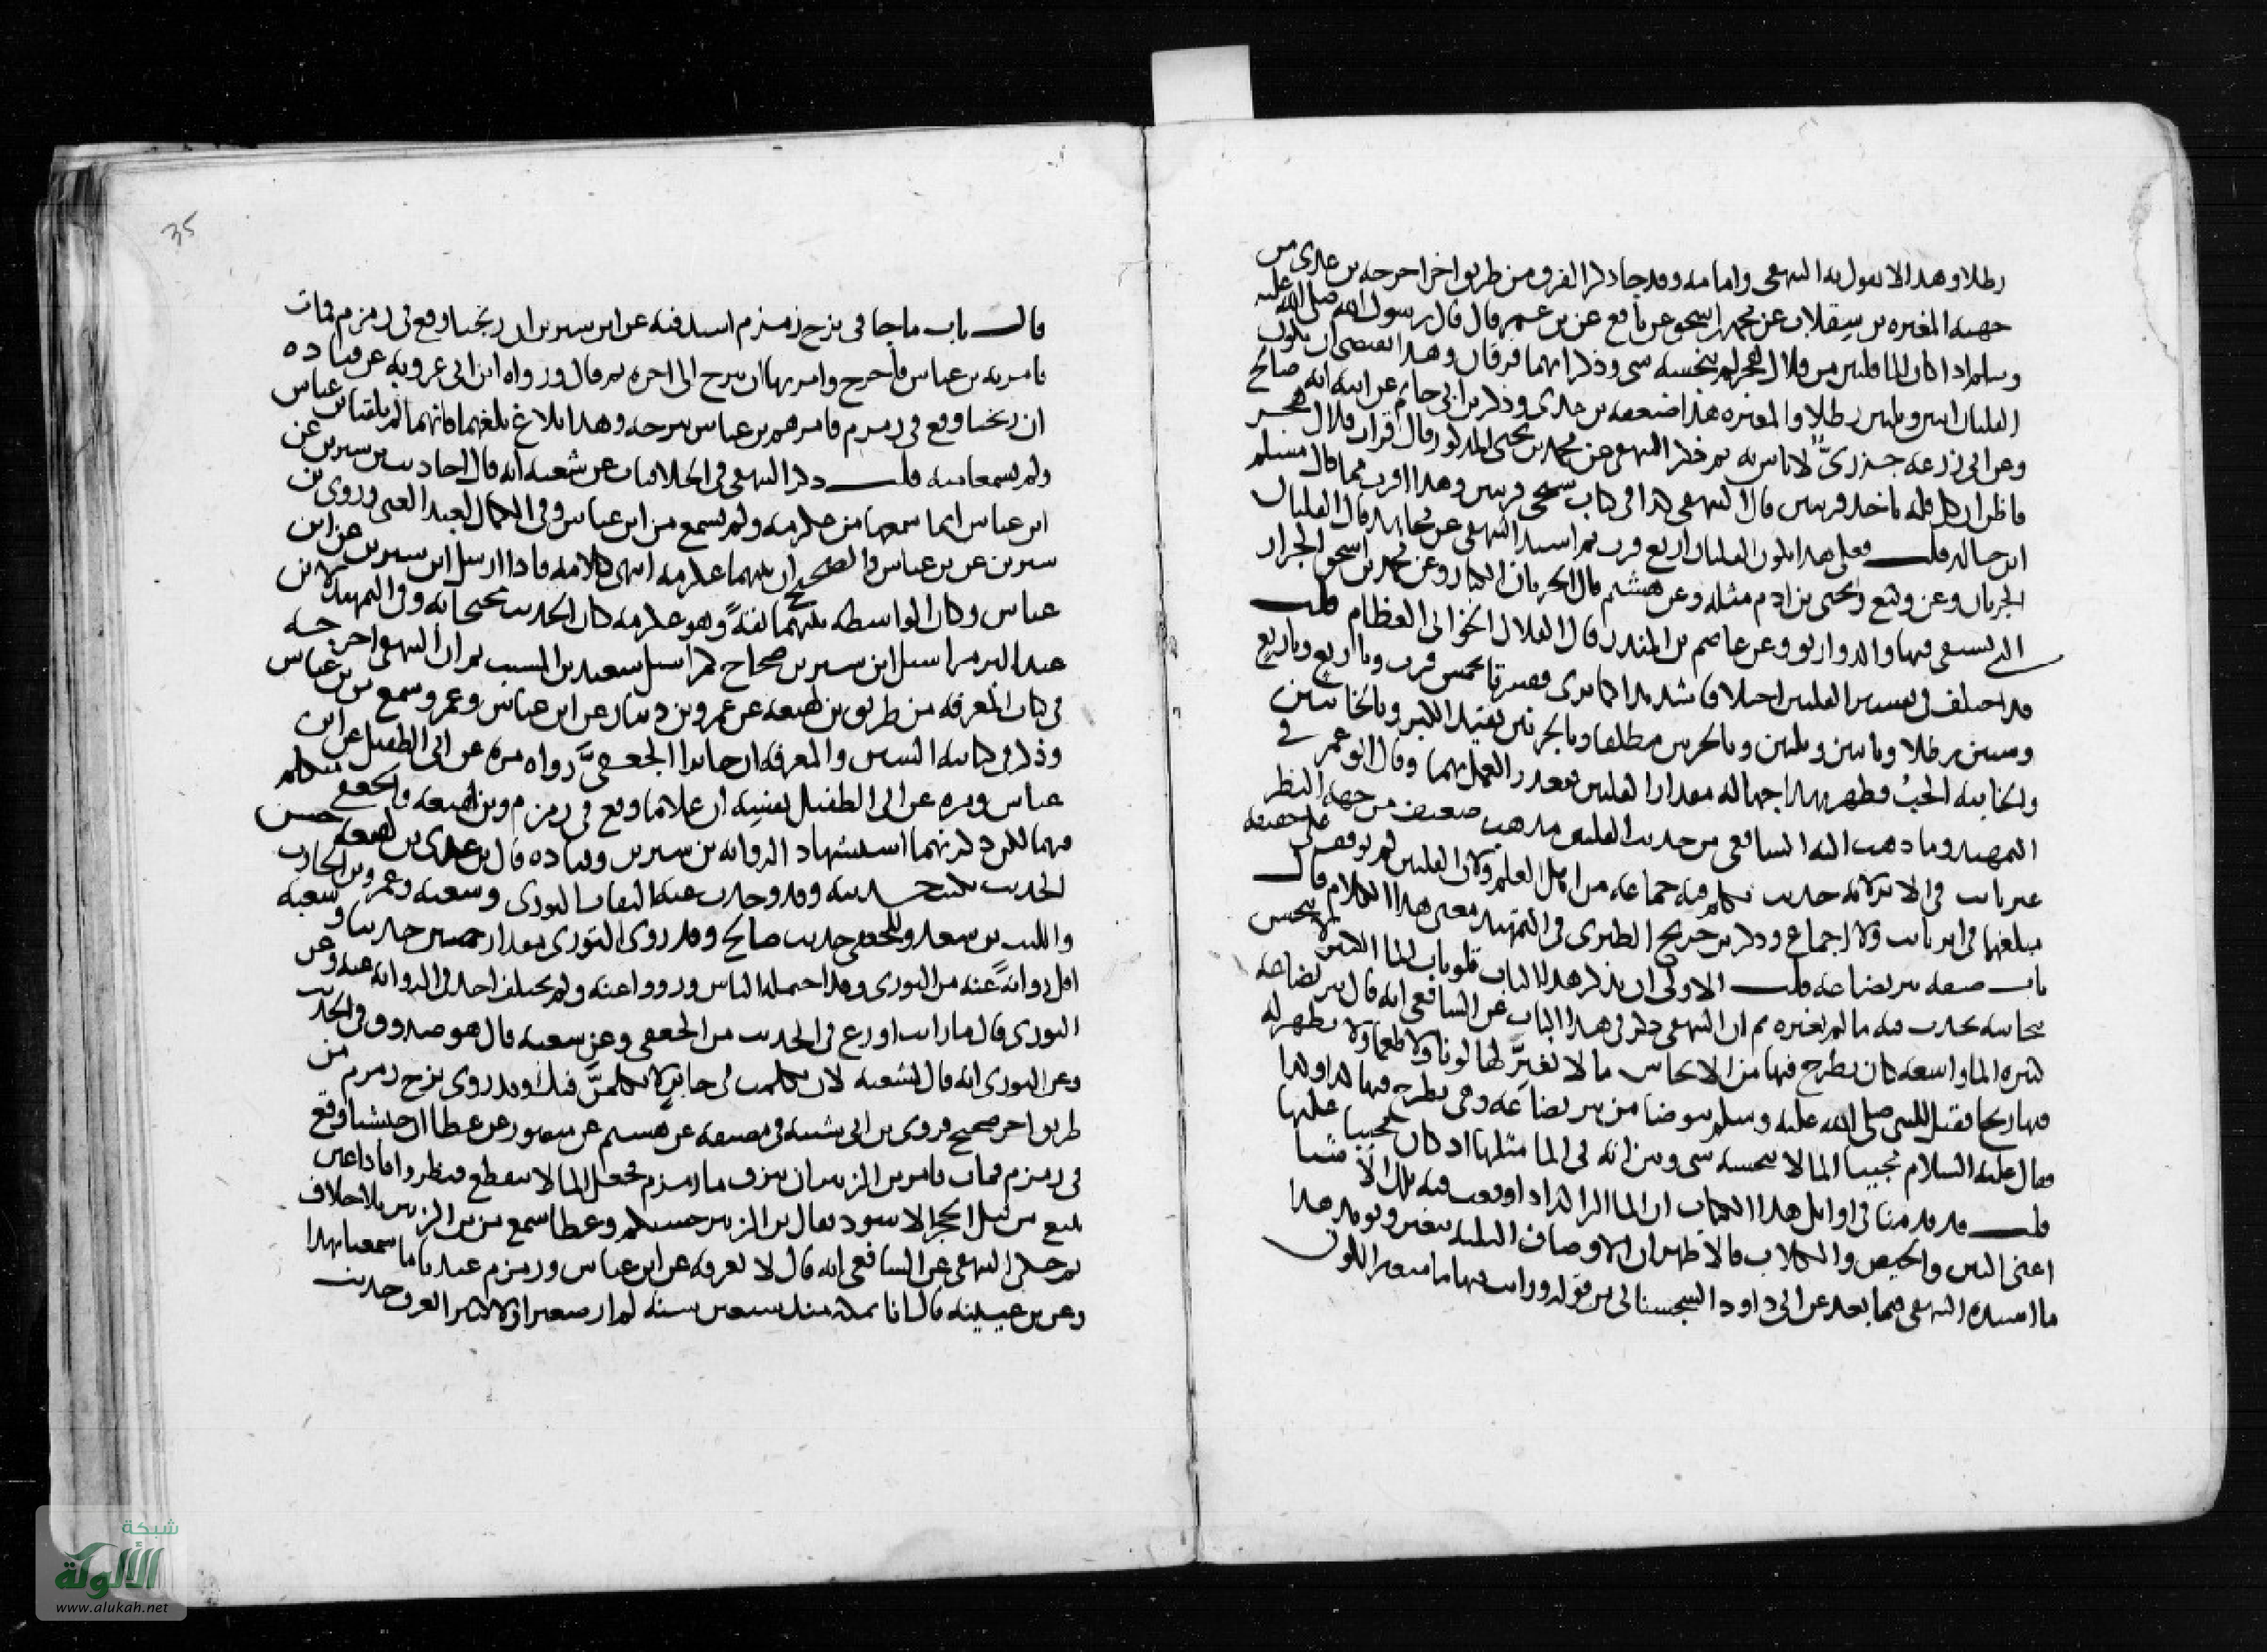 رطلا وهذا لا يقول به البيهقى وامامه وقد جا ذكر الفرق من طريق اخر اخرجه بن عدى من
جهة المغيرة بن سقلاب عن محمد بن اسحق عن نافع عن بن عمر قال قال رسول الله صلى الله عليه
وسلم اذا كان الما قلتين من قلال هجر لم ينجسه شى وذكر انهما فرقان وهذا يقتضى ان يكون
القلتان اثنين وثلثين رطلا والمغيرة هذا ضعفه بن عدى وذكر بن ابى حاتم عن ابيه انه صالح
وعن ابى زرعة جزرى لا باس به ثم ذكر البيهقى عن محمد بن يحيى المذكور قال رايت قلال هجر
فاظن ان كل قلة تاخذ قربتين قال البيهقى كذا فى كتاب شيخى قربتين وهذا اقرب مما قال مسلم
ابن خالد قلت فعلى هذا يكون القلتان اربع قرب ثم اسند البيهقى عن مجاهد قال القلتان
الجرتان وعن وكيع ويحيى بن ادم مثله وعن هشيم قال الجرتان الكبار وعن محمد بن اسحق الجرار
التى يستقى فيها والدواريق وعن عاصم بن المنذر قال القلال الخوابى العظام قلت
قد اختلف فى تفسير القلتين اختلافا شديدا كما ترى ففسرتا بخمس قرب وباربع وباربع
وستين رطلا وباثنين وثلثين وبالجرتين مطلقا وبالجرتين بقيد الكبر وبالخابيتين
والخابية الحب فظهر بهذا جهالة مقدار القلتين فتعذر العمل بهما وقال ابو عمر فى
التمهيد وما ذهب اليه الشافعى من حديث القلتين مذهب ضعيف من جهة النظر
غير ثابت فى الاثر لانه حديث تكلم فيه جماعة من اهل العلم ولان القلتين لم يوقف على حقيقة
مبلغهما فى اثر ثابت ولا اجماع وذكر بن جرير الطبرى فى التهذيب معنى هذا الكلام قال
باب صفة بير بضاعة قلت الاولى ان يذكر هذا الباب تلو باب الما الكثير لا ينجس
بنجاسة تحدث فيه ما لم تغيره ثم ان البيهقى ذكر فى هذا الباب عن الشافعى انه قال بير بضاعة
كثيرة الما واسعة كان يطرح فيها من الانجاس ما لا يغير لها لونا ولا طعما ولا يظهر له
فيها ريح فقيل للنبى صلى الله عليه وسلم توضا من بير بضاعة وهى يطرح فيها كذا وكذا
فقال عليه السلام مجيبا الما لا ينجسه شى وبين انه فى الما مثلها اذ كان مجيبا عليها
قلت قد قدمنا فى اوايل هذا الكتاب ان الما الراكد اذا وقعت فيه تلك الاشيا
اعنى النتن والحيض والكلاب فالاظهر ان الاوصاف الثلثة تتغير ويويد هذا
ما اسنده البيهقى فيما بعد عن ابى داود السجستانى من قوله ورايت فيها ما متغير اللون
35
قال باب ما جا فى نزح زمزم اسند فيه عن ابن سيرين ان زنجيا وقع فى زمزم فمات
فامر به بن عباس فاخرج وامر بها ان تنزح الى اخره ثم قال ورواه ابن ابى عروبة عن قتادة
ان زنجيا وقع فى زمزم فامرهم بن عباس بنزحه وهذا بلاغ بلغهما فانهما لم يلقيا بن عباس
ولم يسمعا منه قلت ذكر البيهقى فى الخلافيات عن شعبة انه قال احاديث بن سيرين عن
ابن عباس انما سمعها من عكرمة ولم يسمع من ابن عباس وفى الكمال لعبد الغنى وروى بن
سيرين عن بن عباس والصحيح ان بينهما عكرمة انتهى كلامه فاذا ارسل ابن سيرين عن ابن
عباس وكان الواسطة بينهما ثقة وهو عكرمة كان الحديث صحيحا ثابتا وفى التمهيد لابن
عبد البر مراسيل ابن سيرين صحاح كمراسيل سعيد بن المسيب ثم ان البيهقى اخرجه
فى كتاب المعرفة من طريق بن لهيعة عن عمرو بن دينار عن ابن عباس وعمرو سمع من بن عباس
وذكر فى كتابيه السنن والمعرفة ان جابرا الجعفى رواه مرة عن ابى الطفيل عن ابن
عباس ومرة عن ابى الطفيل نفسه ان غلاما وقع فى زمزم وبن لهيعة والجعفى متكلم
فيهما لكن ذكرتهما استشهادا لرواية بن سيرين وقتادة قال بن عدى بن لهيعة حسن
الحديث يكتب حديثه وقد حدث عنه الثقات الثورى وشعبة وعمرو بن الحارث
والليث بن سعد وللجعفى حديث صالح وقد روى الثورى مقدار خمسين حديثا وشعبة
اقل رواية عنه من الثورى وقد احتمله الناس ورووا عنه ولم يختلف احد فى الرواية عنه وعن
الثورى قال ما رايت اورع فى الحديث من الجعفى وعن شعبة قال هو صدوق فى الحديث
وعن الثورى انه قال لشعبة لان تكلمت فى جابر لاتكلمن فيك وقد روى نزح زمزم من
طريق اخر صحيح فروى بن ابى شيبة فى مصنفه عن هشيم عن منصور عن عطا ان حبشيا وقع
فى زمزم فمات فامر بن الزبير ان ينزف ما زمزم فجعل الما لا ينقطع فنظروا فاذا عين
تنبع من قبل الحجر الاسود فقال بن الزبير حسبكم وعطا سمع من بن الزبير بلا خلاف
ثم حكى البيهقى عن الشافعى انه قال لا نعرفه عن ابن عباس وزمزم عندنا ما سمعنا بهذا
وعن بن عيينة قال انا بمكة منذ سبعين سنة لم ار صغيرا ولا كبيرا يعرف حديث
شبكة
الألوكة
www.alukah.net